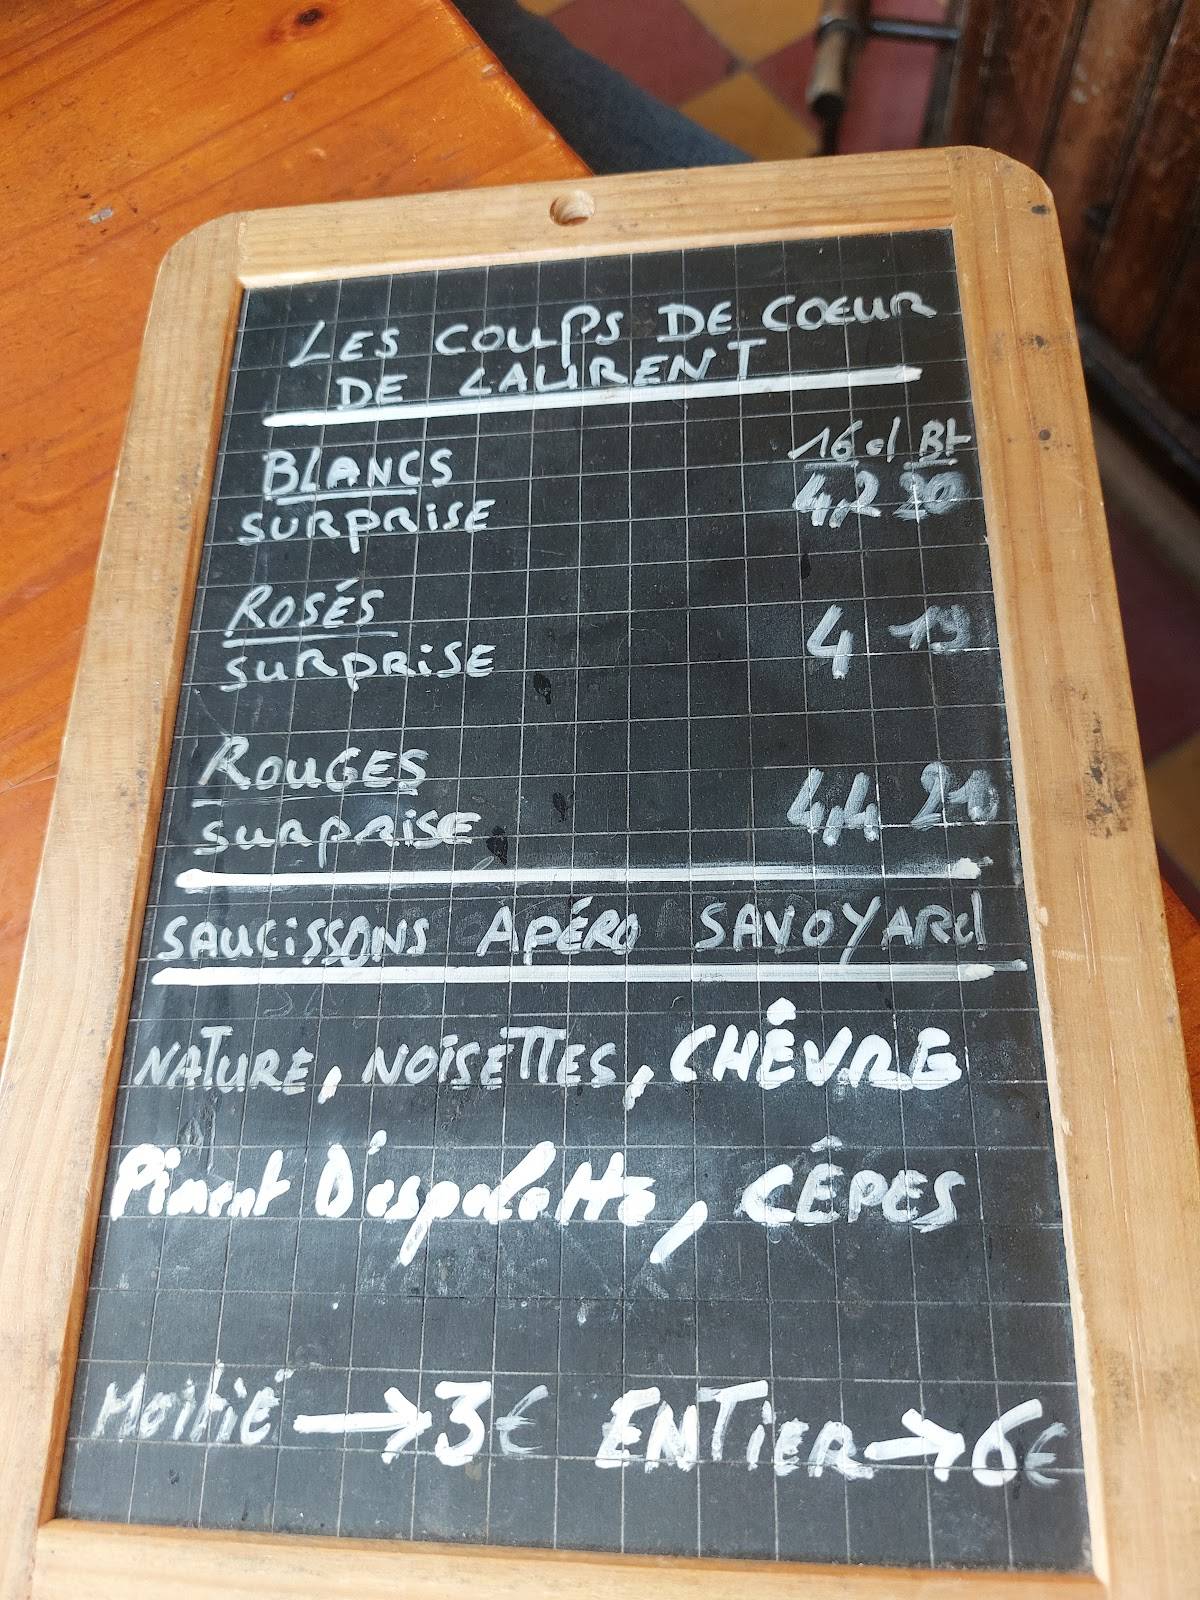 LES COUPS DE COEUR
DE LAURENT
BLANCS 16 cl Bt
SURPRISE 4,2 20
ROSÉS
SURPRISE 4 19
ROUGES
SURPRISE 4,4 21
SAUCISSONS APÉRO SAVOYARd
NATURE, NOISETTES, CHÊVRE
Piment D'espelette, CÊPES
Moitié → 3€ ENTiER → 6€